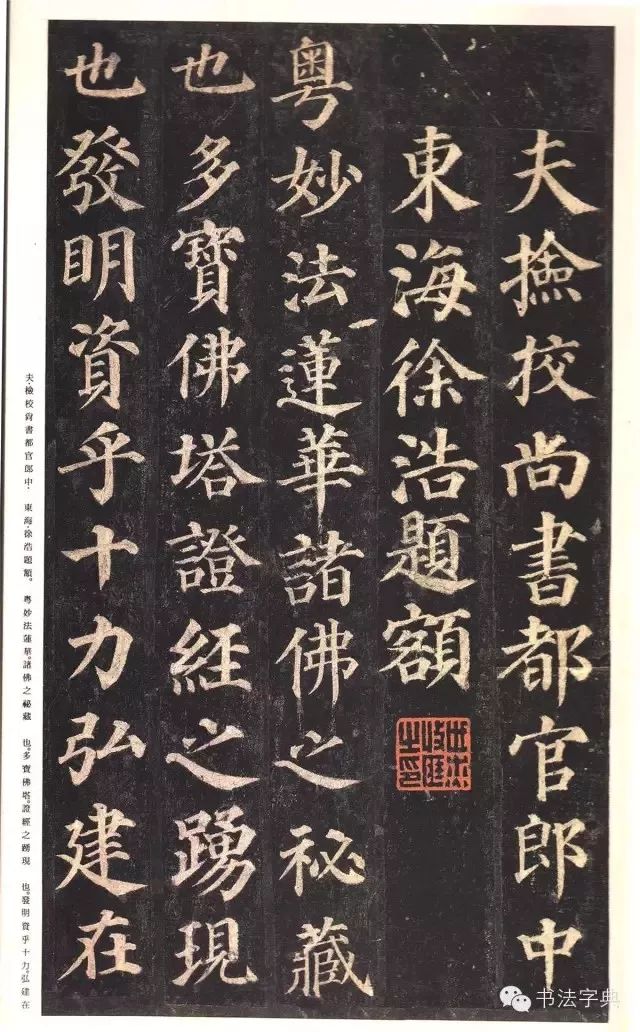 夫撿挍尚書都官郎中
東海徐浩題額
粤妙法蓮華諸佛之祕藏
也多寳佛塔證經之踴現
也發明資乎十力弘建在
夫檢校尚書都官郎中．東海徐浩題額。粤妙法蓮華。諸佛之祕藏也。多寶佛塔。證經之踴現也。發明資乎十力。弘建在
书法字典